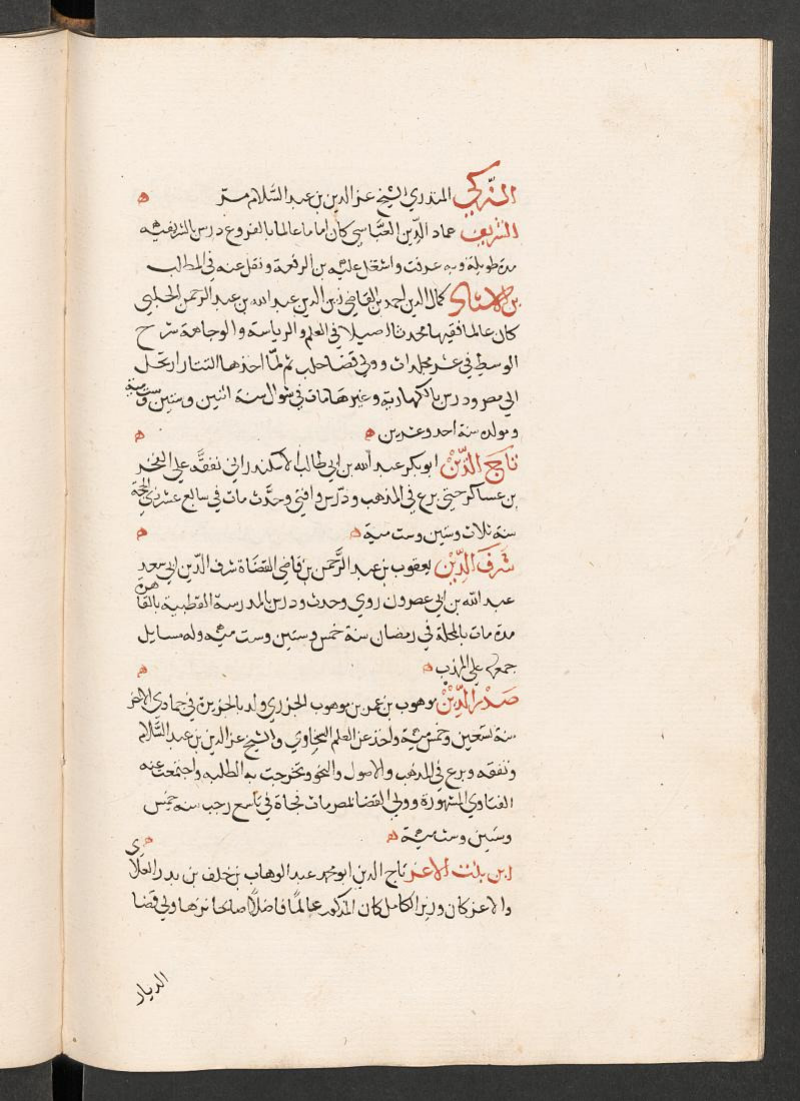 الزكي المنذري الشيخ عز الدين بن عبد السلام مر
الشريف عماد الدين العباسي كان اماما عالما بالفروع درس بالشريفيه
مدة طويلة وبه عرفت واشتغل عليه بن الرفعة ونقل عنه في المطالب
بن الاستاذ كمال الدين احمد بن القاضي زين الدين عبد الله بن عبد الرحمن الحلبي
كان عالما فقيها محدثا اصيلا في العلم والرياسة والوجاهة شرح
الوسيط في عشر مجلدات وولي قضا حلب ثم لما اخذها التتار ارتحل
الي مصر ودرس بالكهارية وغيرها مات في شوال سنة اثنين وستين وست مية
ومولده سنة احد وعشرين
تاج الدين ابو بكر عبد الله بن ابي طالب الاسكندراني تفقه علي الفخر
بن عساكر حتي برع في المذهب ودرس وافتي وحدث مات في سابع عشر ذي الحجة
سنة ثلاث وستين وست مية
شرف الدين يعقوب بن عبد الرحمن بن قاضي القضاة شرف الدين ابي سعد
عبد الله بن ابي عصرون روي وحدث ودرس بالمدرسة القطبية بالقاهرة
مدة مات بالمحلة في رمضان سنة خمس وستين وست مية وله مسايل
جمعها علي المهذب
صدر الدين موهوب بن عمر بن موهوب الجزري ولد بالجزيرة في جمادي الاخر
سنة تسعين وخمس مية واخذ عن العلم السخاوي والشيخ عز الدين بن عبد السلام
وتفقه وبرع في المذهب والاصول والنحو وتخرجت به الطلبه واجتمعت عنه
الفتاوي المشهورة وولي القضا بمصر مات فجاة في تاسع رجب سنة خمس
وستين وست مية
ابن بنت الاعز تاج الدين ابو محمد عبد الوهاب بن خلف بن بدر العلائي
والاعز كان وزير الكامل كان المذكور عالما فاضلا صالحا نزها ولي قضا
الديار